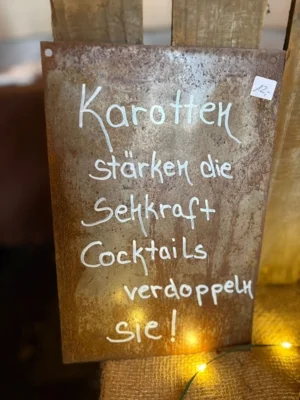 Karotten
stärken die
Sehkraft
Cocktails
verdoppeln
sie!